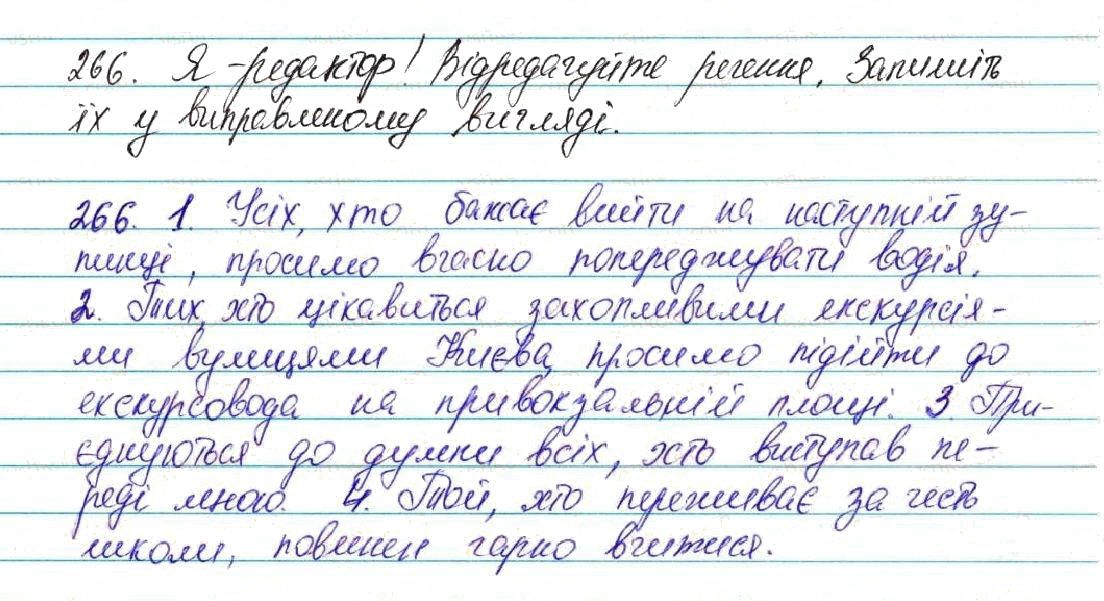 266. Я - редактор! Відредагуйте речення. Запишіть
їх у виправленому вигляді.
266. 1. Усіх, хто бажає вийти на наступній зу-
пинці, просимо вчасно попереджувати водія.
2. Тих, хто цікавиться захопливими екскурсія-
ми вулицями Києва, просимо підійти до
екскурсовода на привокзальній площі. 3. При-
єднуються до думки всіх, хто виступав пе-
реді мною. 4. Той, хто переживає за честь
школи, повинен гарно вчитися.